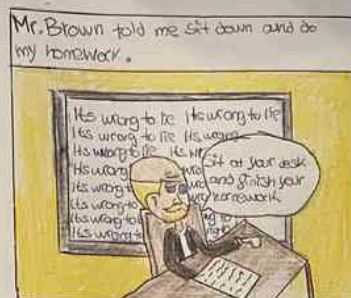 Mr. Brown told me sit down and do
my homework.
Its wrong to lie Its wrong to lie
Its wrong to lie Its wrong
Its wrong to lie Its
Its wrong
Its wrong t
Its wrong to
Its wrong to
Its wrong to
Sit at your desk
and finish your
homework